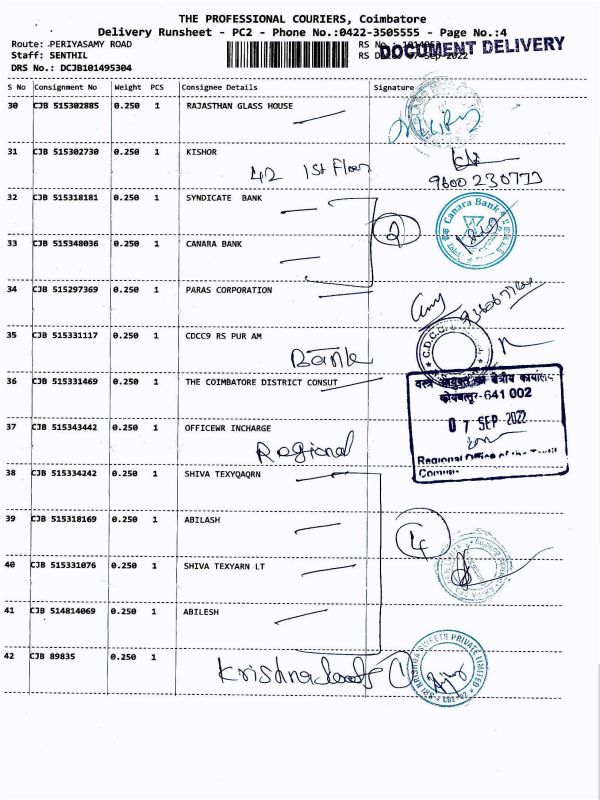 THE PROFESSIONAL COURIERS, Coimbatore
Delivery Runsheet - PC2 - Phone No.:0422-3505555 - Page No.:4
Route: PERIYASAMY ROAD
Staff: SENTHIL
DRS No.: DCJB101495304
RS No.
RS D 07-Sep-2022
DOCUMENT DELIVERY
S No Consignment No Weight PCS Consignee Details Signature
30 CJB 515302885 0.250 1 RAJASTHAN GLASS HOUSE
31 CJB 515302730 0.250 1 KISHOR
42 1st Floor
32 CJB 515318181 0.250 1 SYNDICATE BANK
2
Canara Bank
33 CJB 515348036 0.250 1 CANARA BANK
34 CJB 515297369 0.250 1 PARAS CORPORATION
35 CJB 515331117 0.250 1 CDCC9 RS PUR AM
Bank
36 CJB 515331469 0.250 1 THE COIMBATORE DISTRICT CONSUT
क्षेत्रीय कार्यालय
कोयम्बटूर-641 002
07 SEP 2022
37 CJB 515343442 0.250 1 OFFICEWR INCHARGE
Regional
Regional Office of the
38 CJB 515334242 0.250 1 SHIVA TEXYQAQRN
39 CJB 515318169 0.250 1 ABILASH
4
40 CJB 515331076 0.250 1 SHIVA TEXYARN LT
41 CJB 514814069 0.250 1 ABILESH
42 CJB 89835 0.250 1
Krishna
SRI KRISHNA SWEETS PRIVATE LIMITED